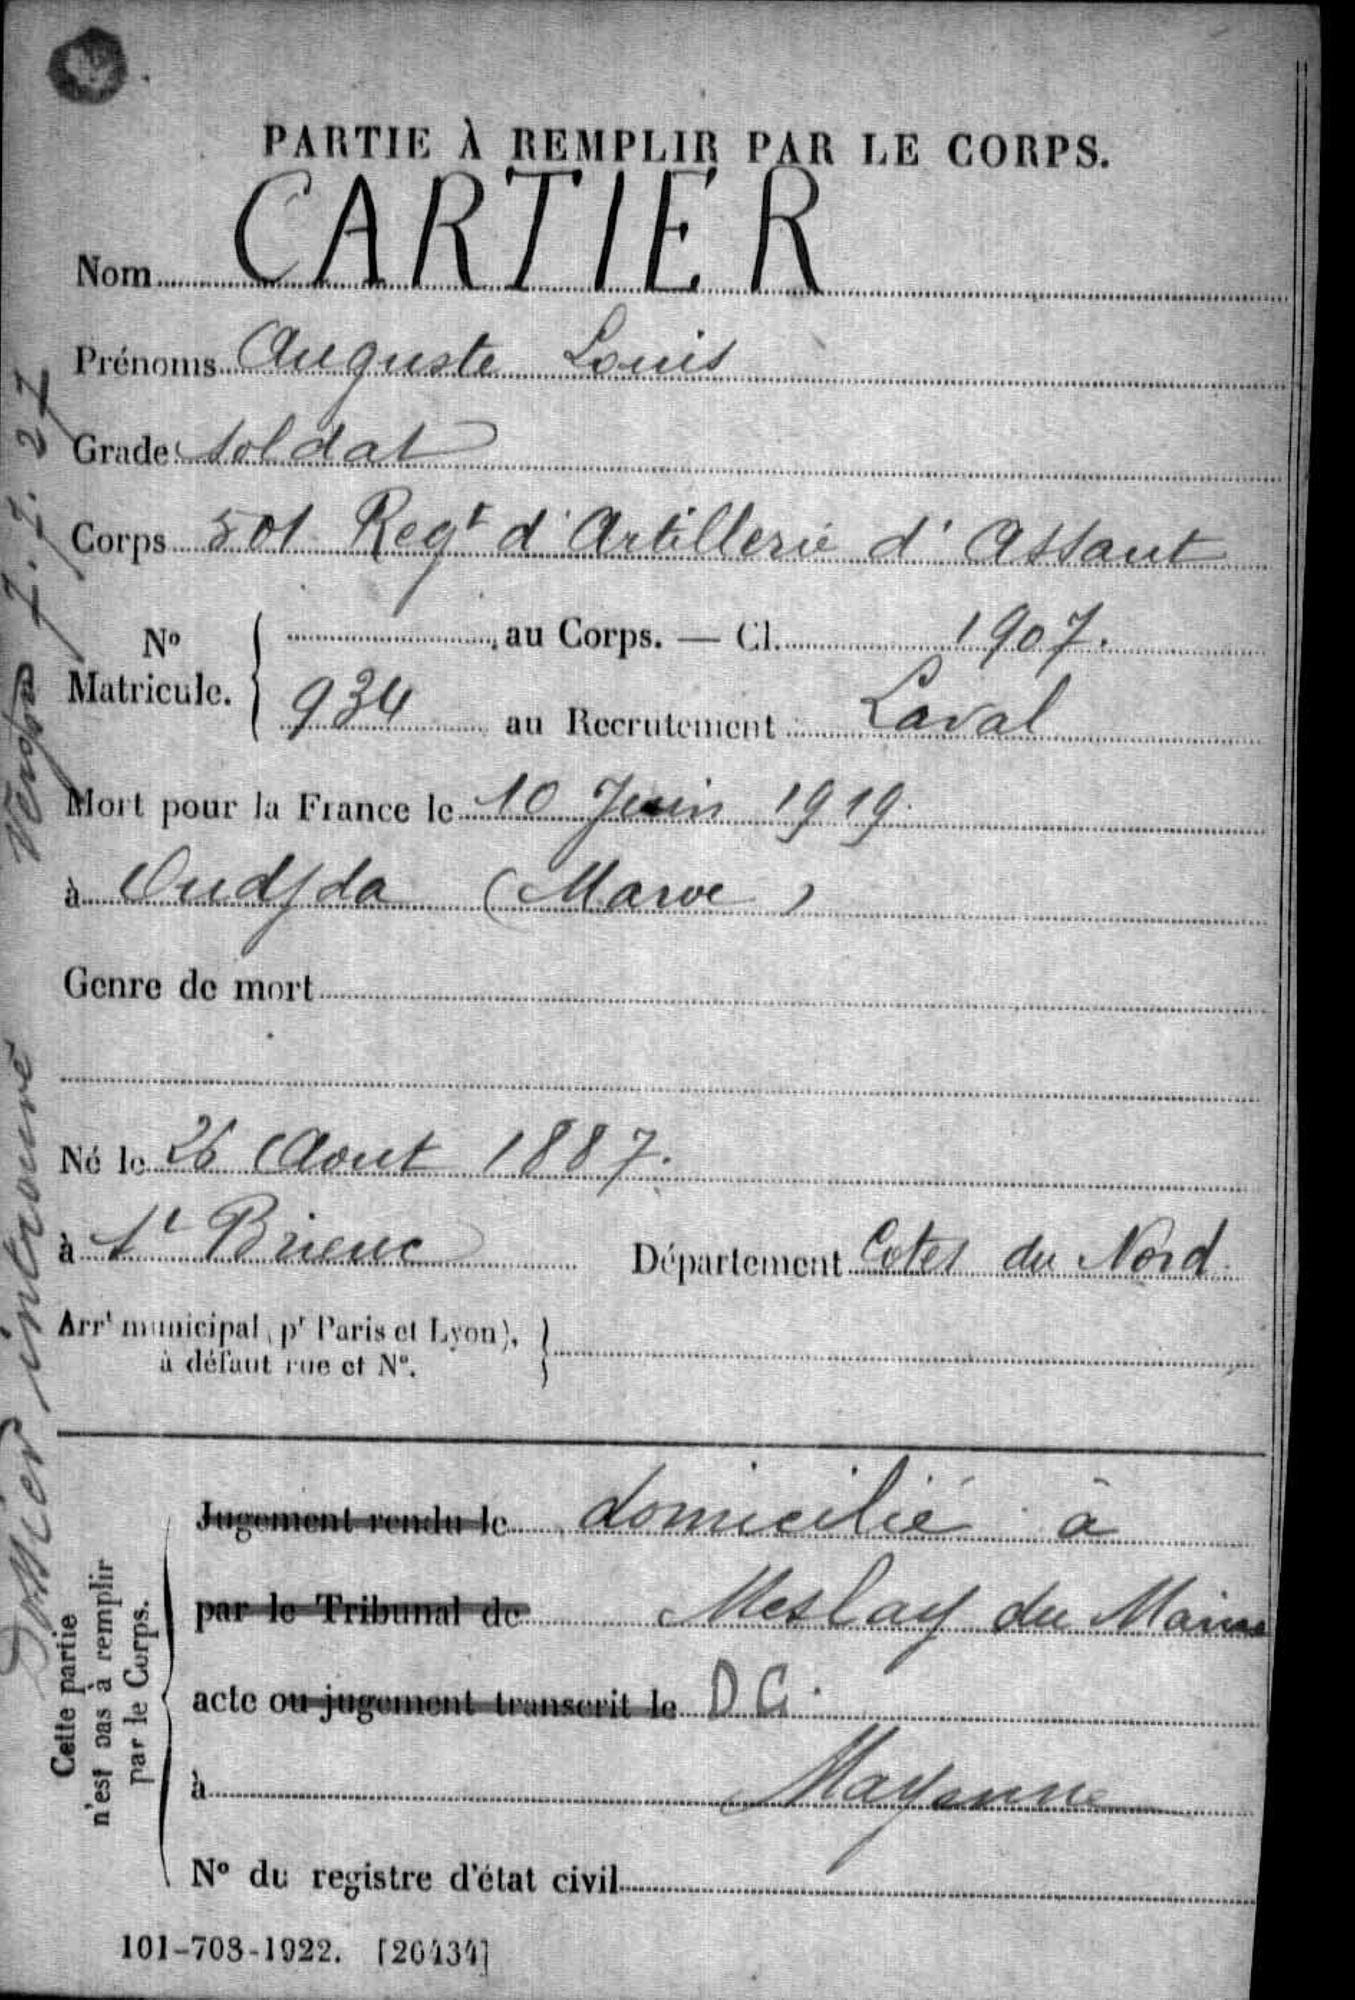 PARTIE À REMPLIR PAR LE CORPS.
Nom CARTIER
Prénoms Auguste Louis
Grade soldat
Corps 501 Regt d'Artillerie d'Assaut
No Matricule. { au Corps. — Cl. 1907.
934 au Recrutement Laval
Mort pour la France le 10 Juin 1919.
à Oudjda (Maroc)
Genre de mort
Né le 26 Aout 1887.
à St Brieuc Département Cotes du Nord
Arrt municipal (pr Paris et Lyon), à défaut rue et No. }
Cette partie n'est pas à remplir par le Corps.
Jugement rendu le domicilié à
par le Tribunal de Meslay du Maine
acte ou jugement transcrit le D C.
à Mayenne
No du registre d'état civil
101-708-1922. [26434]
Dossier introuvé 7.7.27